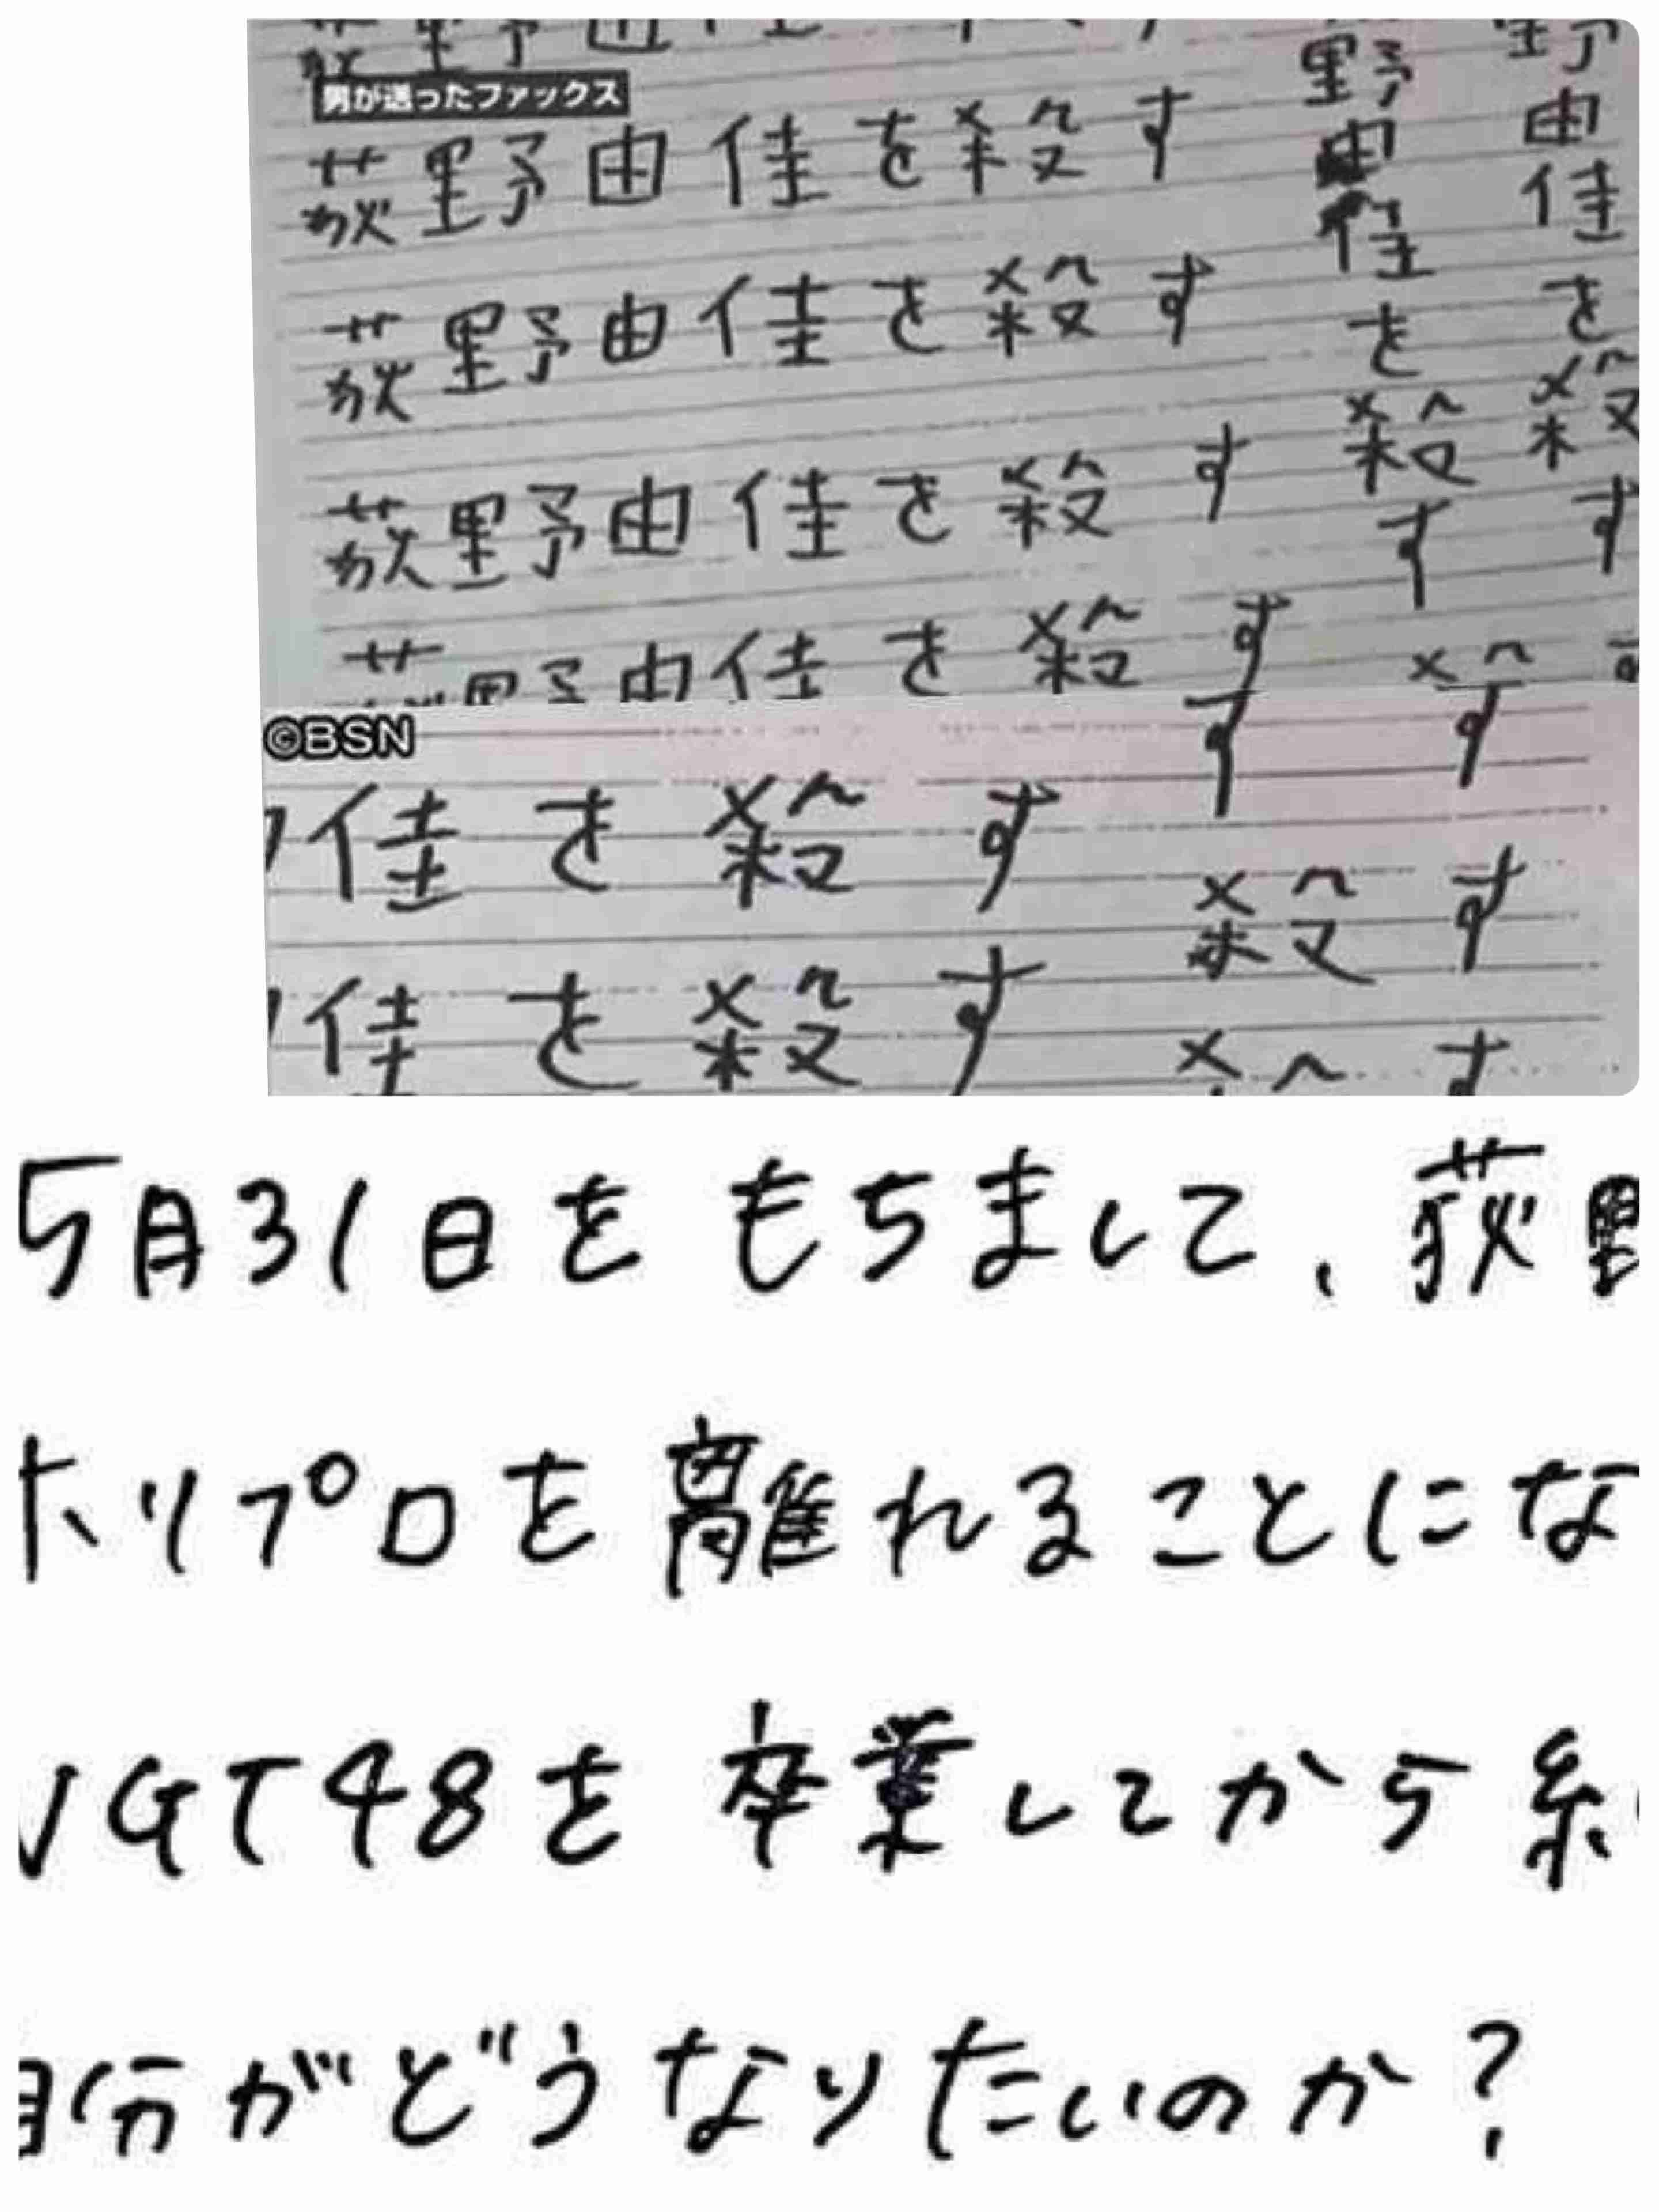 男が送ったファックス
荻野由佳を殺す
荻野由佳を殺す
荻野由佳を殺す
荻野由佳を殺す
野由佳を殺す
野由佳を殺す
©BSN
佳を殺す
佳を殺す
す
す
殺す
5月31日をもちまして、荻野
ホリプロを離れることにな
NGT48を卒業してから
自分がどうなりたいのか?